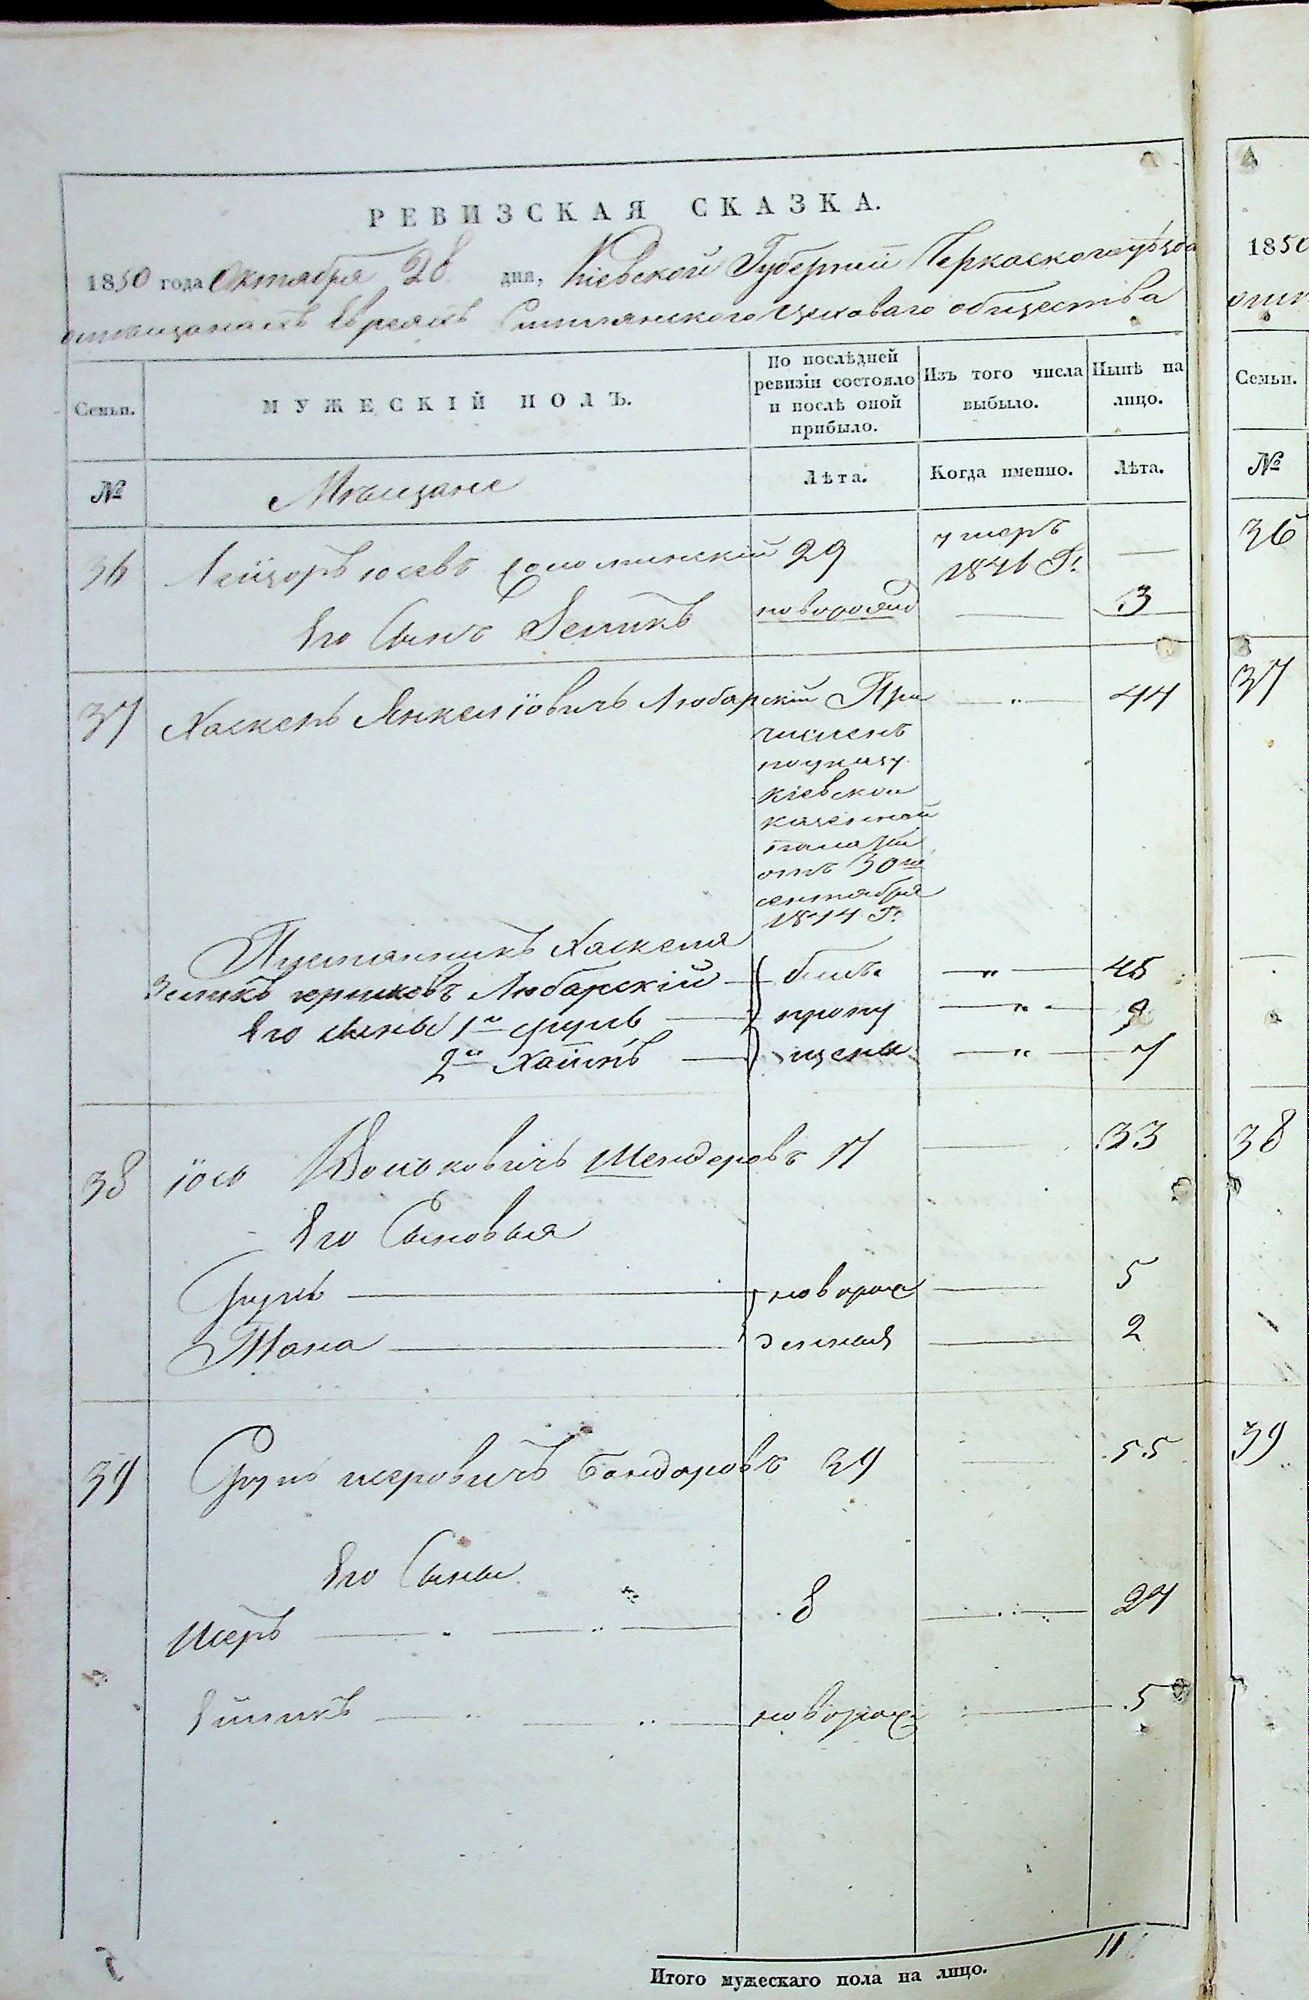 РЕВИЗСКАЯ СКАЗКА.
1850 года Октября 28 дня, Кіевской Губерніи Черкаского уѣзда
Евреяхъ цеховаго общества
Семьи.
МУЖЕСКІЙ ПОЛЪ.
По послѣдней ревизіи состояло и послѣ оной прибыло.
Изъ того числа выбыло.
Нынѣ на лицо.
№
Мѣщане
Лѣта.
Когда именно.
Лѣта.
36 Лейзоръ Юсевъ 29 умеръ 1846 Г. —
Его Сынъ Зеликъ новорожд — 3
37 Хаскель Янкеліовичъ Любарскій При — " — 44
численъ
по указу
Кіевской
казенной
палаты
отъ 30го
сентября
1844 Г.
Племянникъ Хаскеля
Зеликъ Юрковъ Любарскій — былъ — " — 45
Его сыны 1й Сруль — пропу — " — 9
2й Хаимъ — щены — " — 7
38 Іось Волковичъ Шендеровъ 17 — 33
Его Сыновья
Сруль — новорож — 5
Тана — денныя — 2
39 Сруль Шеровичъ Бондаровъ 39 — 55
Его Сыны
Шеръ — 8 — 24
новорож — 5
11
Итого мужескаго пола на лицо.
1850
Семьи.
№
36
37
38
39